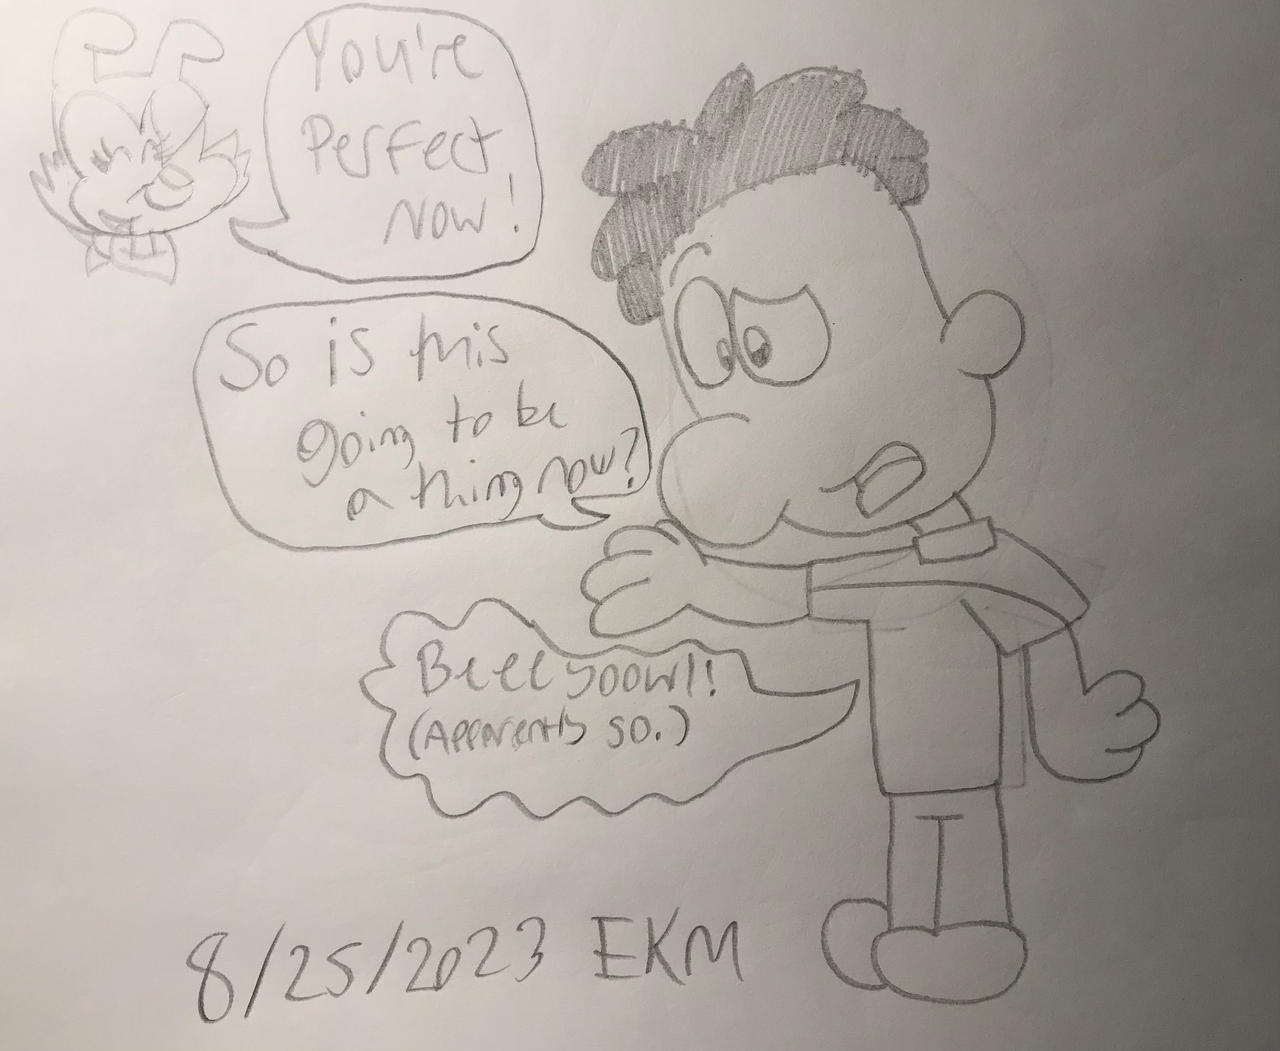 You're
Perfect
Now!
So is this
going to be
a thing now?
Bleeyoow!!
(Apparently so.)
8/25/2023 EKM